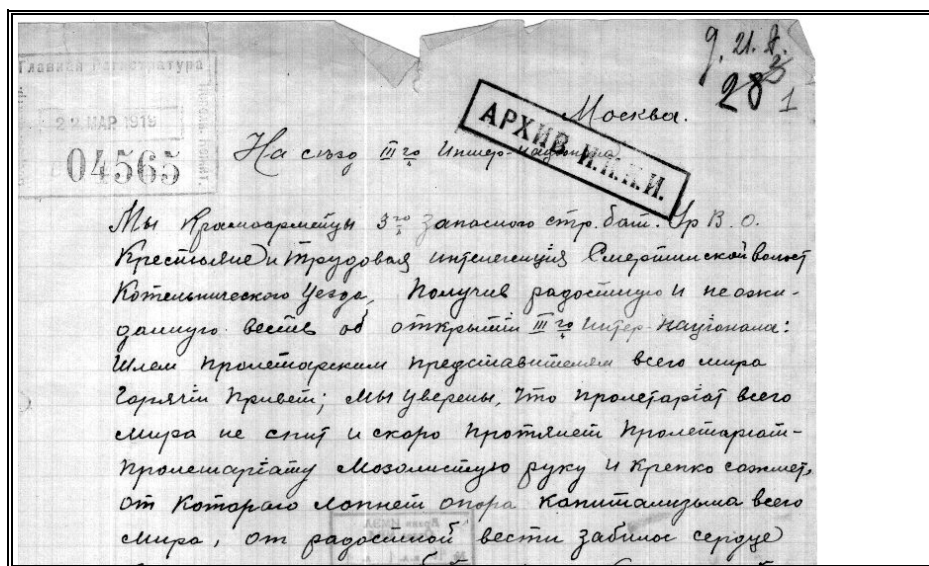 Главной Регистратура
22 МАР 1919
04565
9. 21. 8.
28 1
Москва.
АРХИВ И.К.К.И.
На съезд III го Интер-национала
Мы Красноармейцы 3го Запасного стр. бат. Ур В. О.
Крестьяне и трудовая интелегенция Смертинской волост
Котельнического Уезда, Получив радостную и неожи-
данную весть об открытіи III го Интер-Націонала:
Шлем пролетарским представителям всего мира
Горячій Привет; мы уверены, что пролетаріат всего
мира не спит и скоро протянет Пролетаріат-
Пролетаріату Мозолистую руку и крепко сожмет,
от Котораго лопнет опора капитализьма всего
Мира, от радостной вести забилос сердце